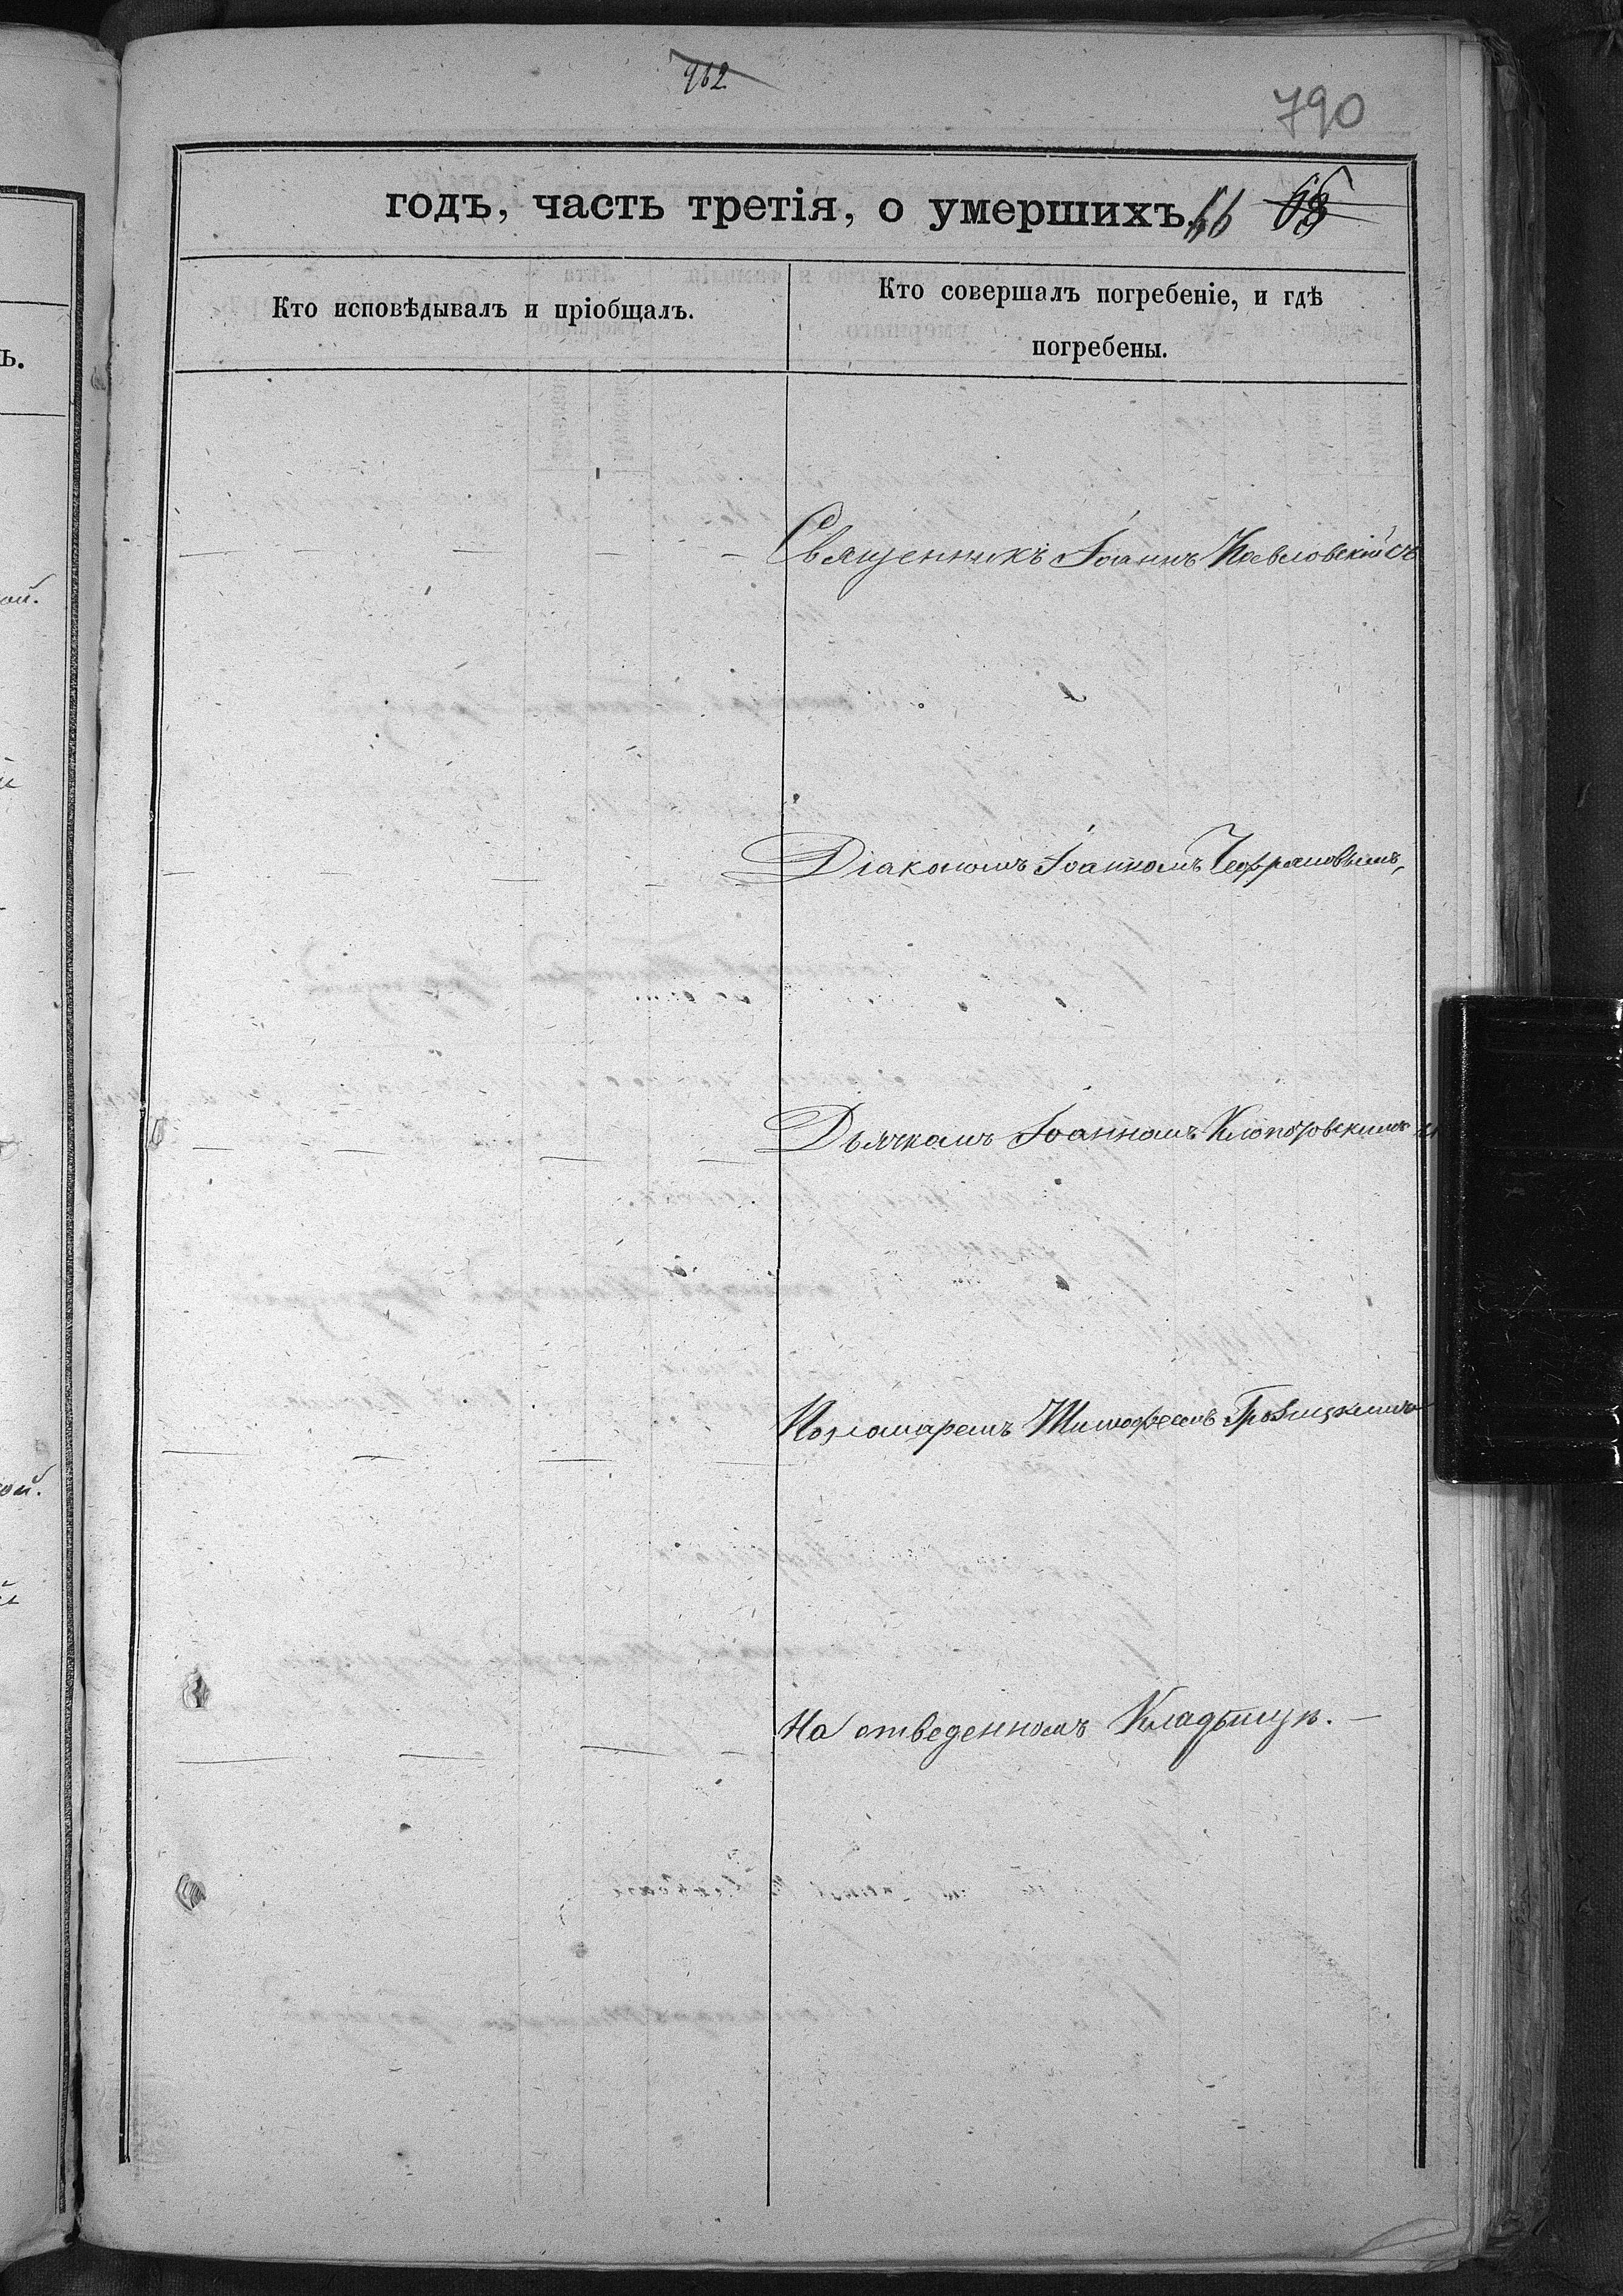 962
790
годъ, часть третія, о умершихъ. 66 68
Кто исповѣдывалъ и пріобщалъ.
Кто совершалъ погребеніе, и гдѣ
погребены.
Священникъ Іоаннъ Павловскій съ
Діакономъ Іоанномъ
Дьячкомъ Іоанномъ Клопотовскимъ и
Пономаремъ Тимофеемъ
На отведенномъ Кладбищѣ. —